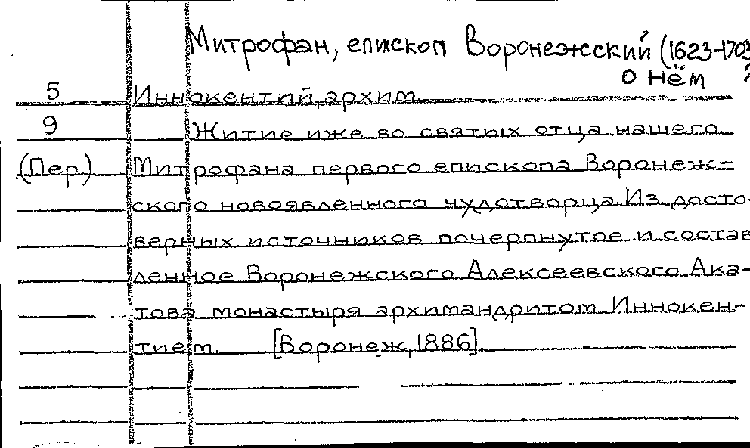 Митрофан, епископ Воронежский (1623-1703
о нём
5 Иннокентий, архим.
9 Житие иже во святых отца нашего
(Пер.) Митрофана первого епископа Воронеж-
ского новоявленного чудотворца Из досто-
верных источников почерпнутое и состав
ленное Воронежского Алексеевского Ака-
това монастыря архимандритом Иннокен-
тием. [Воронеж, 1886].